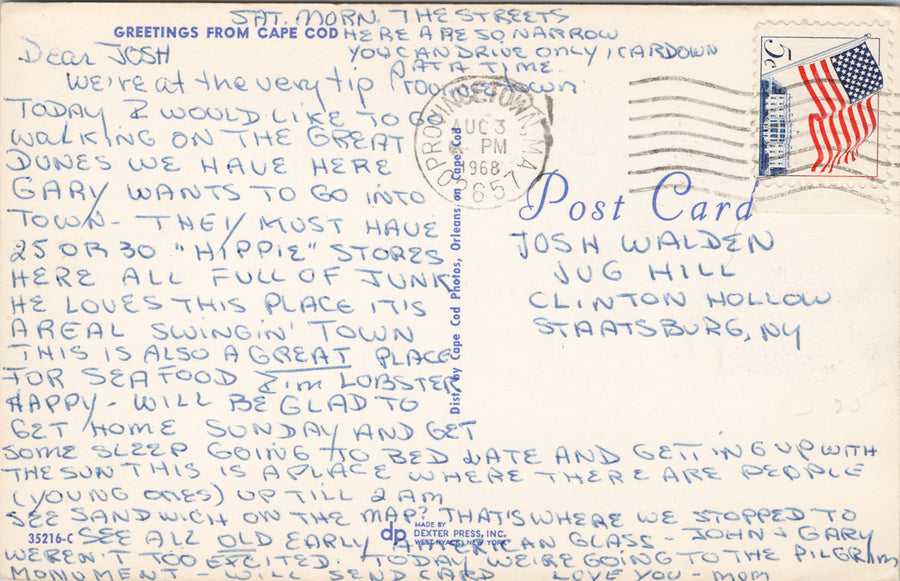 GREETINGS FROM CAPE COD
SAT. MORN. THE STREETS
HERE ARE SO NARROW
YOU CAN DRIVE ONLY 1 CAR DOWN
AT A TIME.
Dear JOSH
We're at the very tip Provincetown
TODAY I WOULD LIKE TO GO
WALKING ON THE GREAT
DUNES WE HAVE HERE
GARY WANTS TO GO INTO
TOWN - THEY MUST HAVE
25 OR 30 "HIPPIE" STORES
HERE ALL FULL OF JUNK
HE LOVES THIS PLACE IT'S
A REAL SWINGIN' TOWN
THIS IS ALSO A GREAT PLACE
FOR SEAFOOD I'm LOBSTER
HAPPY - WILL BE GLAD TO
GET HOME SUNDAY AND GET
SOME SLEEP GOING TO BED LATE AND GETTING UP WITH
THE SUN THIS IS A PLACE WHERE THERE ARE PEOPLE
(YOUNG ONES) UP TILL 2 AM
SEE SANDWICH ON THE MAP? THAT'S WHERE WE STOPPED TO
SEE ALL OLD EARLY AMERICAN GLASS - JOHN & GARY
WEREN'T TOO EXCITED. TODAY WE'RE GOING TO THE PILGRIM
MONUMENT - WILL SEND CARD LOVE YOU - MOM
35216-C
dp
MADE BY
DEXTER PRESS, INC.
WEST NYACK, NEW YORK
Dist. by Cape Cod Photos, Orleans on Cape Cod
PROVINCETOWN, MA
AUG 3
PM
1968
02657
5c
Post Card
JOSH WALDEN
JUG HILL
CLINTON HOLLOW
STAATSBURG, NY